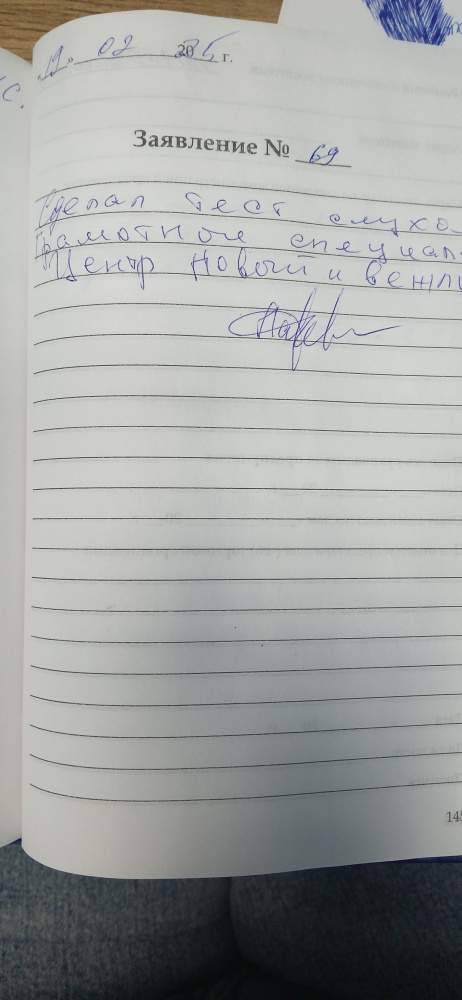 с.
«19» 02 2025 г.
Заявление № 69
Сделал тест слухо
Грамотное специал
Центр новый и вежли
145